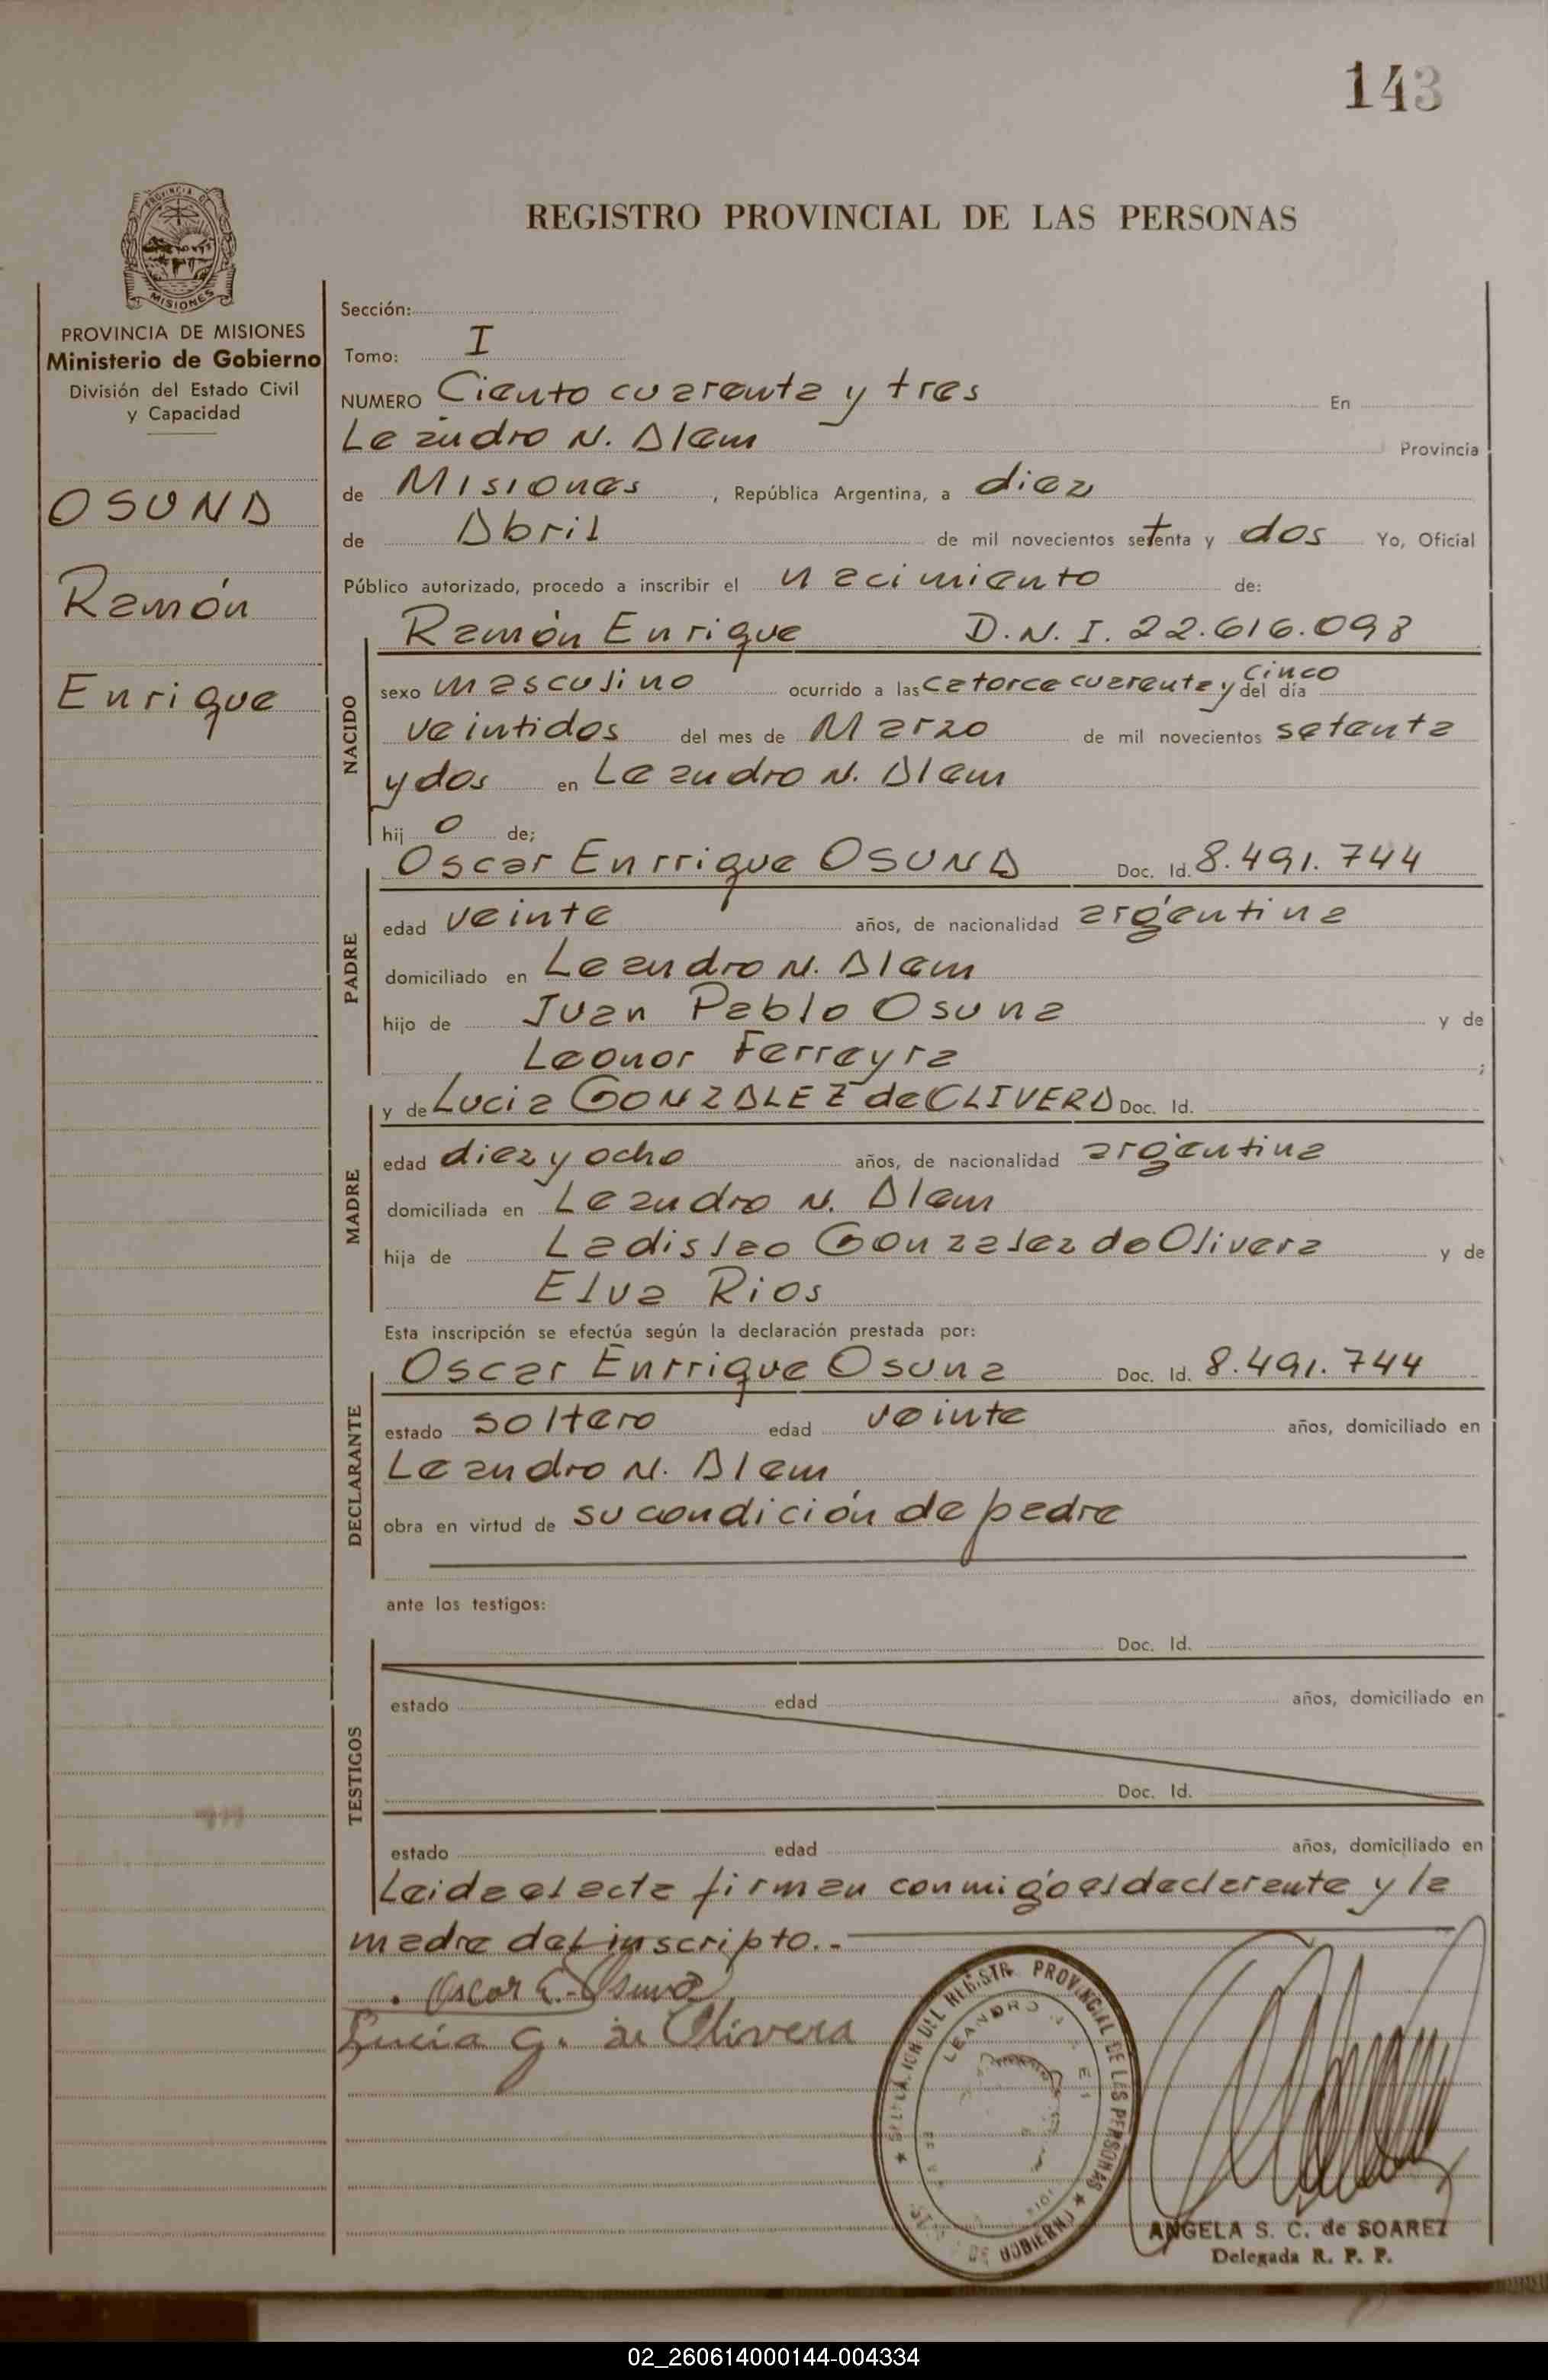 143
REGISTRO PROVINCIAL DE LAS PERSONAS
PROVINCIA DE MISIONES
Ministerio de Gobierno
División del Estado Civil
y Capacidad
OSUNA
Ramón
Enrique
Sección:
Tomo: I
NUMERO Ciento cuarenta y tres En
Leandro N. Alem Provincia
de Misiones, República Argentina, a diez
de Abril de mil novecientos setenta y dos Yo, Oficial
Público autorizado, procedo a inscribir el nacimiento de:
NACIDO
Ramón Enrique D.N.I. 22.616.098
sexo masculino ocurrido a las catorce cuarenta y cinco del día
veintidos del mes de Marzo de mil novecientos setenta
y dos en Leandro N. Alem
hij o de;
PADRE
Oscar Enrrique OSUNA Doc. Id. 8.491.744
edad veinte años, de nacionalidad argentina
domiciliado en Leandro N. Alem
hijo de Juan Pablo Osuna y de
Leonor Ferreyra ;
MADRE
y de Lucia GONZALEZ de OLIVERA Doc. Id.
edad diez y ocho años, de nacionalidad argentina
domiciliada en Leandro N. Alem
hija de Ladislao Gonzalez de Olivera y de
Elva Rios
Esta inscripción se efectúa según la declaración prestada por:
DECLARANTE
Oscar Enrrique Osuna Doc. Id. 8.491.744
estado soltero edad veinte años, domiciliado en
Leandro N. Alem
obra en virtud de su condición de padre
ante los testigos:
TESTIGOS
Doc. Id.
estado edad años, domiciliado en
Doc. Id.
estado edad años, domiciliado en
Leida el acta firman conmigo el declarante y la
madre del inscripto.-
Oscar E. Osuna
Lucia G. de Olivera
DEL REGISTR PROVINCIAL DE LAS PERSONAS
LEANDRO N
DE GOBIERNO
ANGELA S. C. de SOAREZ
Delegada R. P. P.
02_260614000144-004334